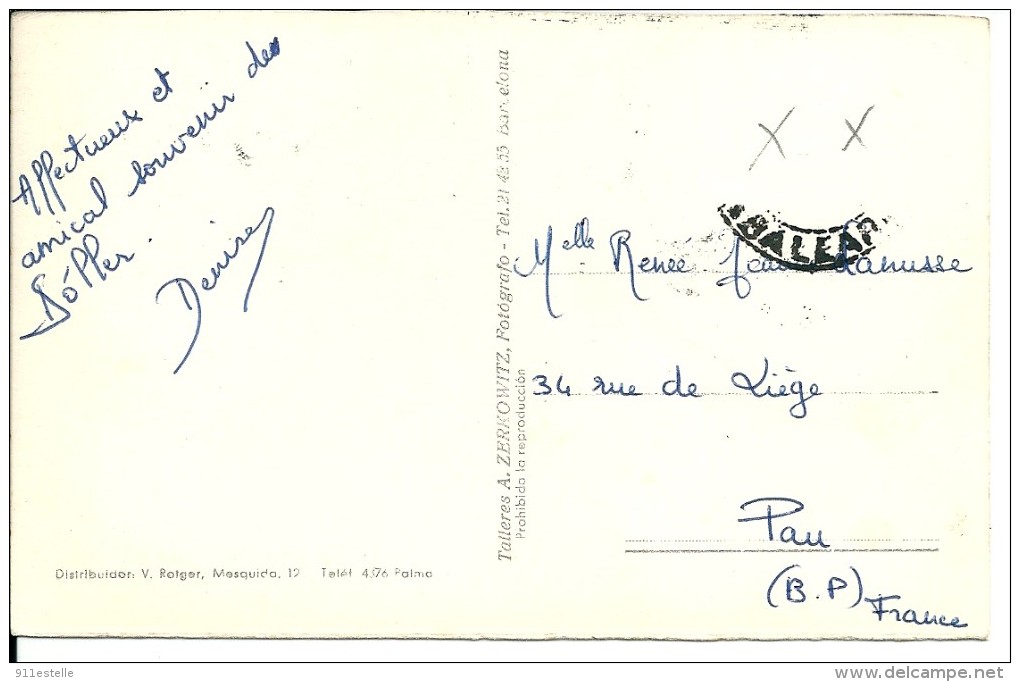 Affectueux et
amical souvenir des
Denise
Distribuidor: V. Rotger, Mesquida, 12 Teléf. 4376 Palma
Talleres A. ZERKOWITZ, Fotógrafo - Tel. 21 42 55 Barcelona
Prohibida la reproducción
BALEAR
Melle Renée Lanusse
34 rue de Liège
Pau
(B.P) France
911estelle
delcampe.net